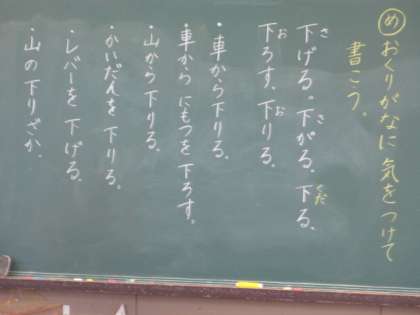 め おくりがなに気をつけて
書こう。
下げる。下がる、下る、
下ろす、下りる、
・車から下りる。
・車からにもつを下ろす。
・山から下りる。
・かいだんを下りる。
・レバーを下げる。
・山の下りざか、